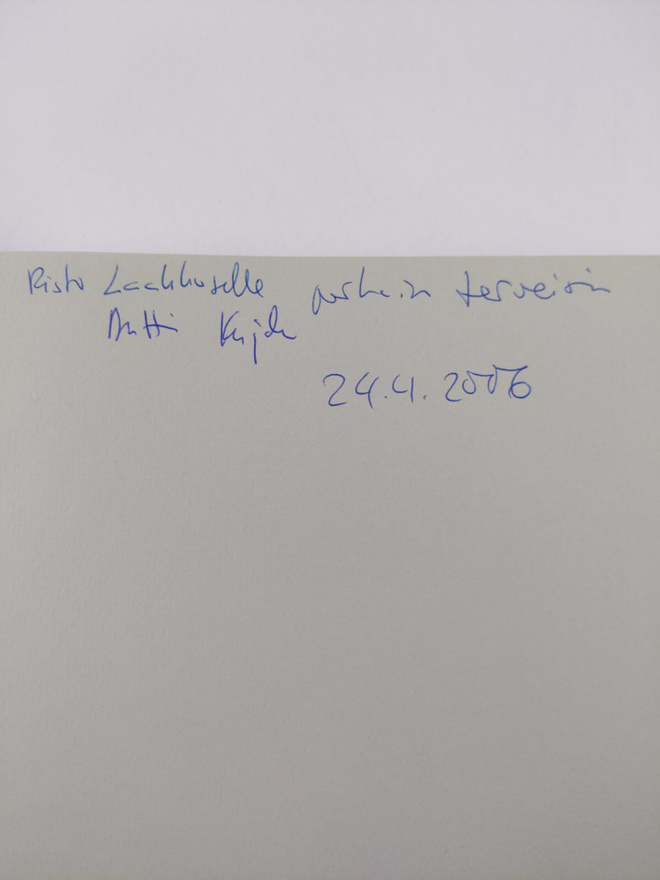 Risto Laakkoselle parhain terveisin
Antti Kuj
24.4.2006